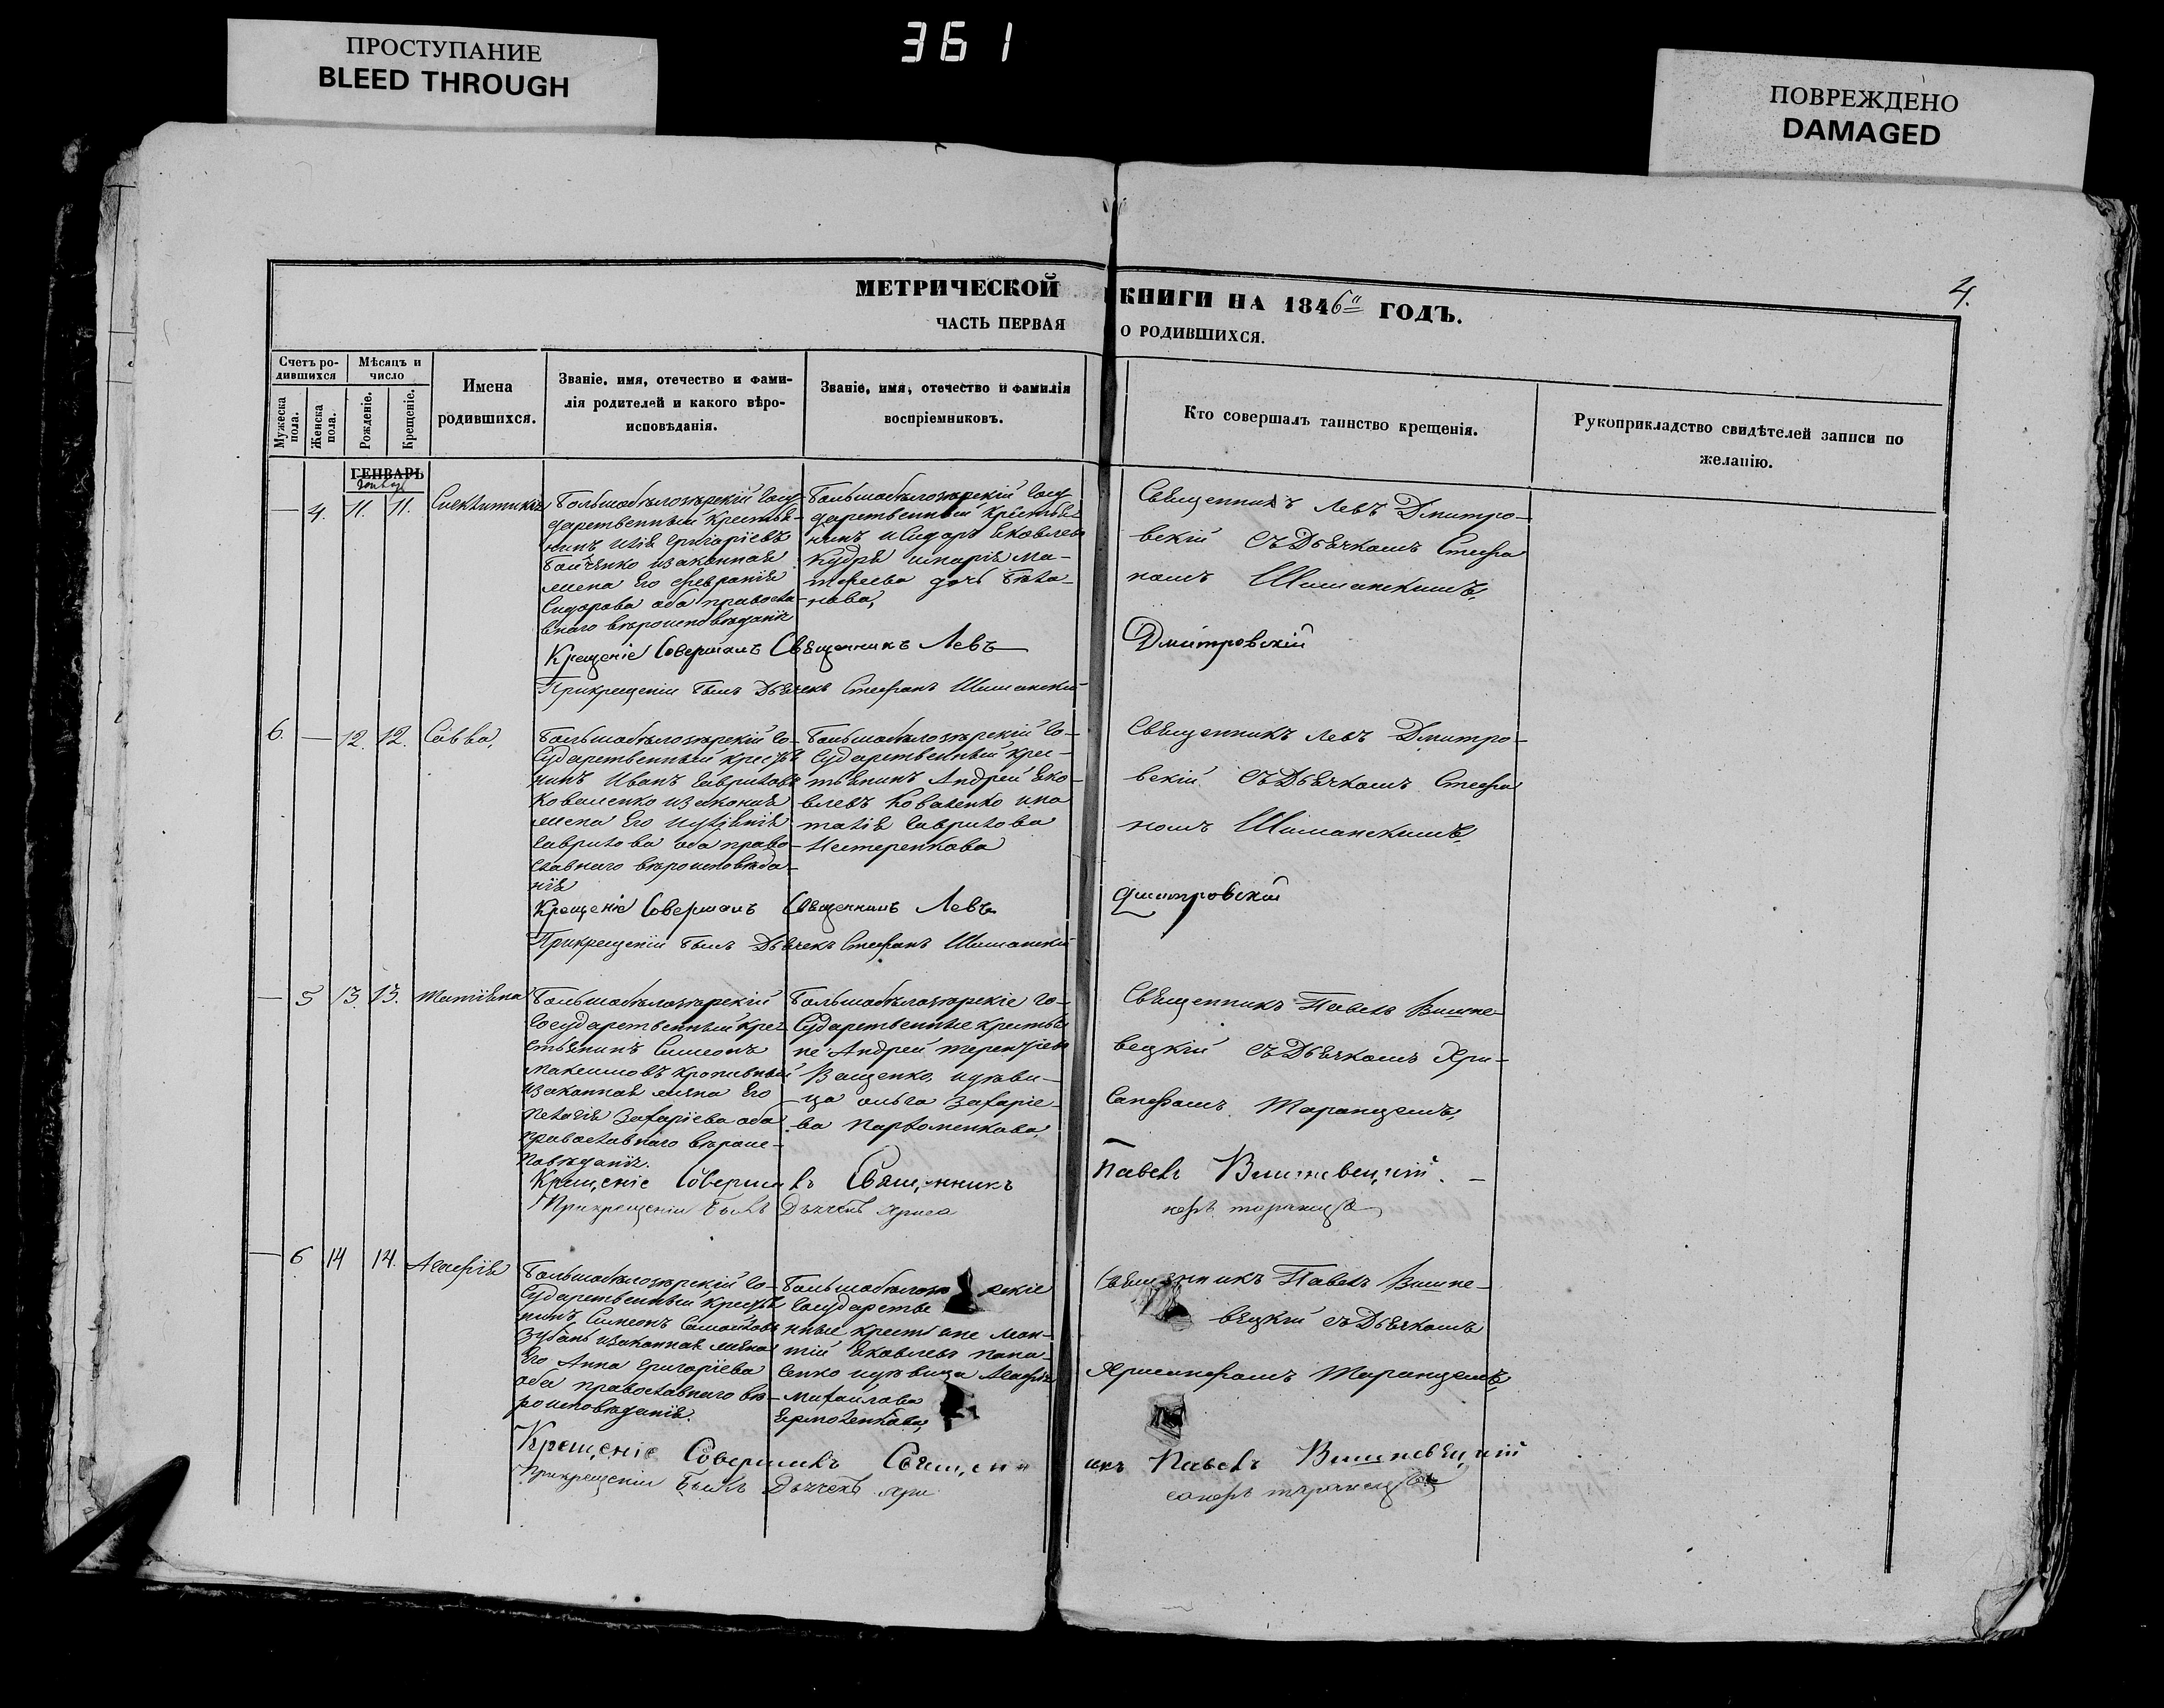 ПРОСТУПАНИЕ
BLEED THROUGH
361
ПОВРЕЖДЕНО
DAMAGED
4.
МЕТРИЧЕСКОЙ КНИГИ НА 1846 ГОДЪ.
ЧАСТЬ ПЕРВАЯ О РОДИВШИХСЯ.
Счетъ ро-
дившихся
Мужеска
пола.
Женска
пола.
Мѣсяцъ и
число
Рожденіе.
Крещеніе.
Имена
родившихся.
Званіе, имя, отечество и фами-
лія родителей и какого вѣро-
исповѣданія.
Званіе, имя, отечество и фамилія
воспріемниковъ.
Кто совершалъ таинство крещенія.
Рукоприкладство свидѣтелей записи по
желанію.
ГЕНВАРЬ
— 4. 11. 11.
Большебѣлозѣрскій госу
дарственный крестья-
нинъ Илія Григоріевъ
законная
жена его Февронія
Сидорова оба правосла-
внаго вѣроисповѣданія
Большебѣлозѣрскій госу
дарственный крестья
нинъ Исидоръ Яковлевъ
Кудря Марія Ма-
тфеева дочь
Священникъ Левъ Дмитро-
вскій съ Дьячкомъ Стефа
номъ Шиманскимъ,
Крещеніе совершалъ Священникъ Левъ Дмитровскій
При крещеніи былъ Дьячекъ Стефанъ Шиманскій
6. — 12. 12. Савва,
Большебѣлозѣрскій го-
сударственный крестья
нинъ Иванъ Гавриловъ
Коваленко и законная
жена его
Гаврилова оба право-
славнаго вѣроисповѣда-
нія
Большебѣлозѣрскій го-
сударственный крес-
тьянинъ Андрей Яко-
влевъ Коваленко и На
талія Гаврилова
Нестеренкова
Священникъ Левъ Дмитро-
вскій съ Дьячкомъ Стефа
номъ Шиманскимъ,
Крещеніе совершалъ Священникъ Левъ Дмитровскій
При крещеніи былъ Дьячекъ Стефанъ Шиманскій
— 5 13. 13. Татіяна
Большебѣлозѣрскій
государственный кре-
стьянинъ Симеонъ
Максимовъ Кропивный
и законная жена его
Пелагія Захаріева оба
православнаго вѣроис-
повѣданія.
Большебѣлозѣрскіе го-
сударственные крестья
не Андрей Терентіевъ
Ващенко, и дѣви-
ца Ольга Захаріе-
ва Пархоменкова,
Священникъ Павелъ Вишне-
вецкій съ Дьячкомъ Хри-
санфомъ Таранцемъ,
Крещеніе совершалъ Священникъ Павелъ Вишневецкій. —
При крещеніи былъ Дьячекъ Хриса нфъ Таранецъ
— 6 14 14. Агафія
Большебѣлозѣрскій го-
сударственный крестья
нинъ Симеонъ Самойловъ
Зубань и законная жена
его Анна Григоріева
оба православнаго вѣ-
роисповѣданія.
Большебѣлозѣ скіе
государстве
нные крестьяне Леон-
тій Яковлевъ Пана-
сенко и дѣвица Агафія
Михайлова
Ермоленкова,
Священникъ Павелъ Вишне-
вецкій съ Дьячкомъ
Хрисанфомъ Таранцемъ,
Крещеніе совершалъ Священникъ Павелъ Вишневецкій
При крещеніи былъ Дьячекъ Хри санфъ Таранецъ